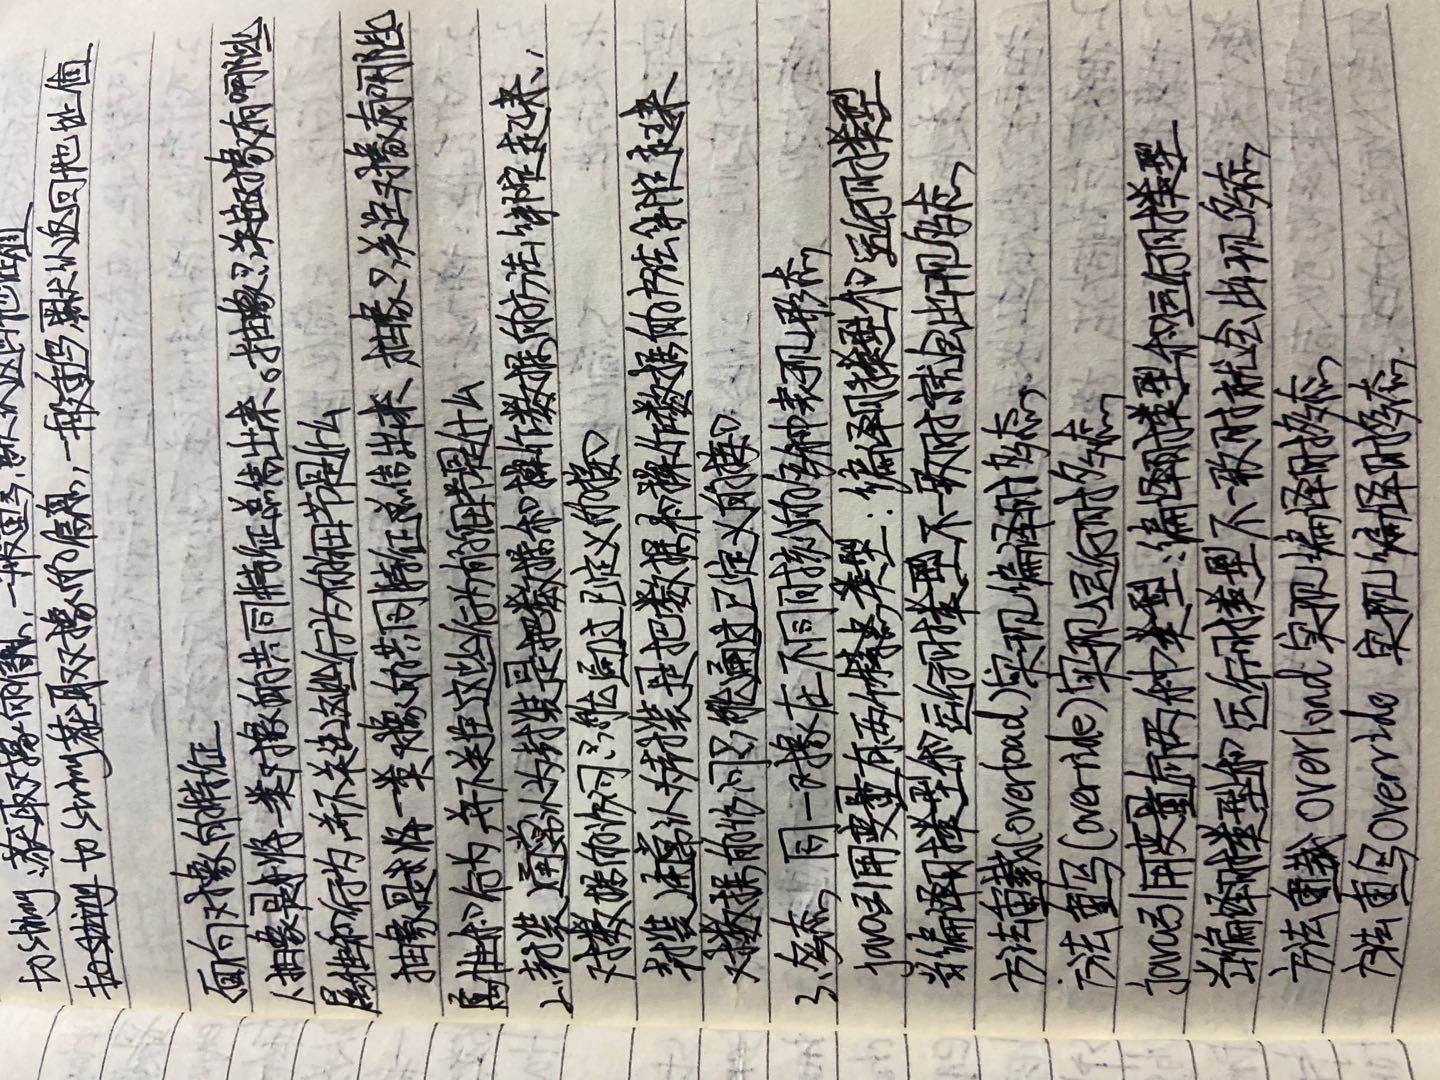 tostring:获取对象的信息,一般重写,默认返回地址值
tostring to string获取对象的信息,一般重写,默认返回地址值
面向对象的特征
1抽象是将一类对象的共同特征总结出来。抽象只关注对象有哪些
属性和行为,并不关注这些行为的细节是什么
抽象是将一类对象的共同特征总结出来 抽象只关注对象有哪些
属性和行为,并不关注这些行为的细节是什么
2、封装 通常认为封装是把数据和操作数据的方法绑定起来,
对数据的访问只能通过已定义的接口
封装 通常认为封装是把数据和操作数据的方法绑定起来
对数据的访问只能通过已定义的接口
3、多态 同一对象在不同时刻的多种表现形态
java引用变量有两个类型:编译时类型和运行时类型
当编译时类型和运行时类型不一致时就会出现多态
方法重载(overload)实现编译时多态
方法重写(override)实现运行时多态
java引用变量有两种类型:编译时类型和运行时类型
当编译时类型和运行时类型不一致时就会出现多态
方法重载 overload 实现编译时多态
方法重写override 实现编译时多态.